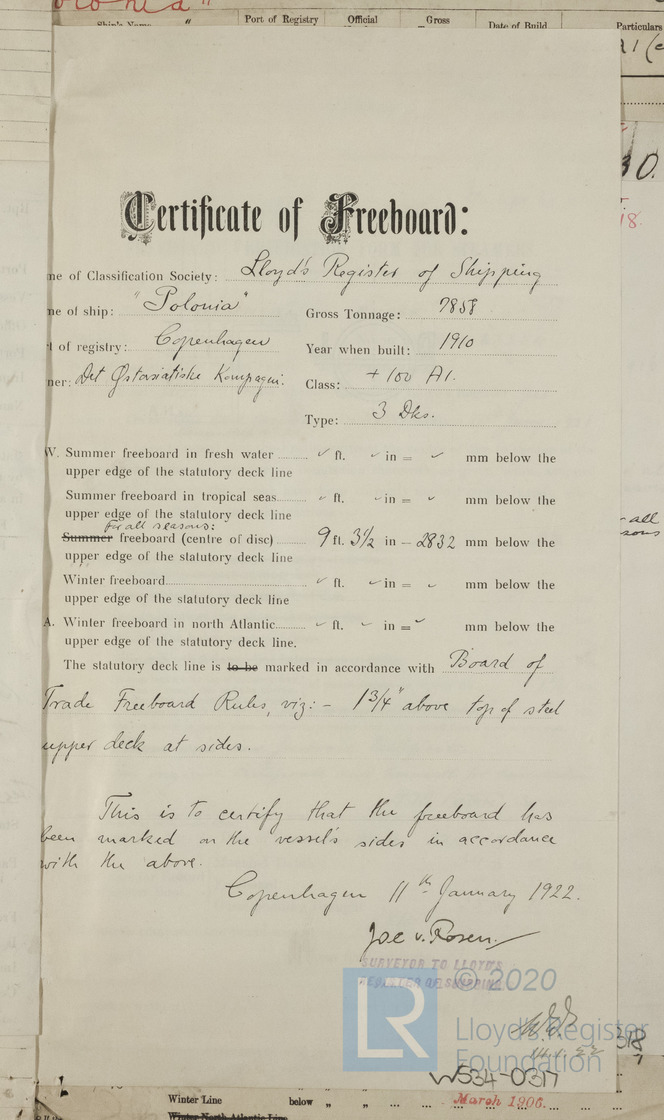 olonia"
Ship's Name " Port of Registry Official Gross Date of Build. Particulars
Certificate of Freeboard:
me of Classification Society: Lloyd's Register of Shipping
me of ship: "Polonia" Gross Tonnage: 7858
t of registry: Copenhagen Year when built: 1910
ner: Det Østasiatiske Kompagni. Class: + 100 A1.
Type: 3 Dks.
W. Summer freeboard in fresh water ft. in = mm below the
upper edge of the statutory deck line
Summer freeboard in tropical seas ft. in = mm below the
upper edge of the statutory deck line
for all seasons:
Summer freeboard (centre of disc) 9 ft. 3½ in – 2832 mm below the
upper edge of the statutory deck line
Winter freeboard ft. in = mm below the
upper edge of the statutory deck line
A. Winter freeboard in north Atlantic ft. in = mm below the
upper edge of the statutory deck line.
The statutory deck line is to be marked in accordance with Board of
Trade Freeboard Rules, viz:- 1¾" above top of steel
upper deck at sides.
This is to certify that the freeboard has
been marked on the vessel's sides in accordance
with the above.
Copenhagen 11th January 1922.
Joe v. Rosen.
SURVEYOR TO LLOYD'S
REGISTER OF SHIPPING
© 2020
LR
Lloyd's Register
Foundation
W534-0317
Winter Line below " " March 1906.
Winter North Atlantic Line